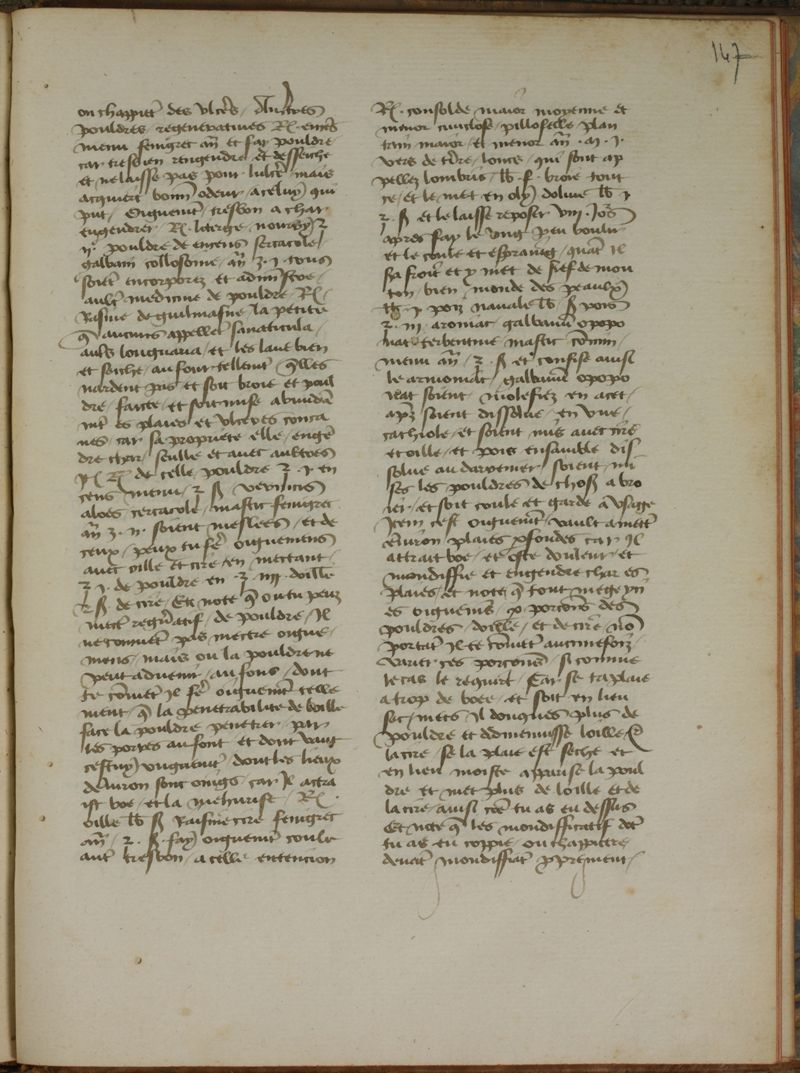 147
on chappitre des ulceres / Aultres
pouldres regeneratives Rx. encens
menu fenugrec añ et fay pouldre
car tresbien rengendre / et desseiche
et ne laisse pas pour lulcere mais
acquiert bonne odeur / a celuy qui
put / Onguent tresbon a char
engendrer / Rx. litarge nourry ʒ
ij. pouldre de encens sercacole
galbani collofonie / añ ʒ. j. tous
soient encorporez et adminstre /
aultre medicine de pouldre / Rx /
racine de guimalve la petite
que aucuns appellent sanaticula /
aultres longuana / et les lave bien
et seiche / au four tellement quelles
nardent pas et soit broie et poul
dre / faicte / et soit mise abundam
ment es plaies et ulceres conca
ves car sa propriete elle / engen
dre char / seulle et avec aultres
de celle pouldre ʒ. j. en
cens menu / ʒ ß vernicis
aloes sercacole / mastic fenugrec
añ ʒ. ij. soient meslees / et de
ceux / peux tu fere onguemens
avec oille et cire / en mectant /
ʒ j. de pouldre en ʒ. iiij. doille
ß. de cire / Et note que ou tu peuz
mectre regeneratif / de pouldre / Il
ne convient pas mectre ongue /
mens / mais ou la pouldre ne
peut advenir / au fons / dont
te convient il fere onguement telle
ment / que la penetrabilite de loille
face la pouldre penetrer / par
les portes au font et dont vault
cestuy onguent dont les lieux
denviron sont onigs / car Il attra
ist boe / et la meheurist / Rx.
oille lb ß raisine cire fenugrec
añ / ʒ. ß. fay onguement coule
ault tresbon / a celle entencion
Rx. consolde maior moyenne et
menor pillosselle plan
tain maior et menor añ. . j.
vers de terre / longs / qui sont ap
pellez lombris / lb. ß. broie tout
ce / et le met en oly dolive lb j
ʒ ß et le laisse reposer viij. jours
apres fay le ung peu boulir
et le coule et espraing / quant Il
sera froit et y met de sief de mou
ton / bien / monde des peaulx
lb j poiz navale lb ß poix
ʒ. iij aromat galbanum opopo
nac terbentine mastic encens
menu añ / ʒ. ß et confise ainsi
le armoniac / galbanum opopo
nac soient molefiez en acet /
apres soient dissolue / en une /
cathiole / et soient mis avec cire
et oille / et poix ensamble dis
solve au darrenier soient mi
ses les pouldres de chose a bro
ier / et soit coule et garde a usaige
Item cest onguement vault a mettre
environ plaies profondes car Il
attrait boe / et oste douleur / et
mondiffie et engendre char es
plaies / et note que tout mege yci
es onguens proporcons des
pouldres doille / et de cire non
portant Il te convient aucunefoiz
varier ces porcons / si comme
le cas le requiert / Car se ta plaie
a trop de boee / et soit en lieu
sec / mets Il donques plus de
pouldre et dedmenuisse loille et
la cire / se la plaie est seche et
en lieu moiste appetise la poul
dre et met plus de loille et de
la cire ainsi come tu as eu dessus
Et note que les mondifficatif dont
tu as eu coppie / ou chappitre
devant mondiffiant proprement /